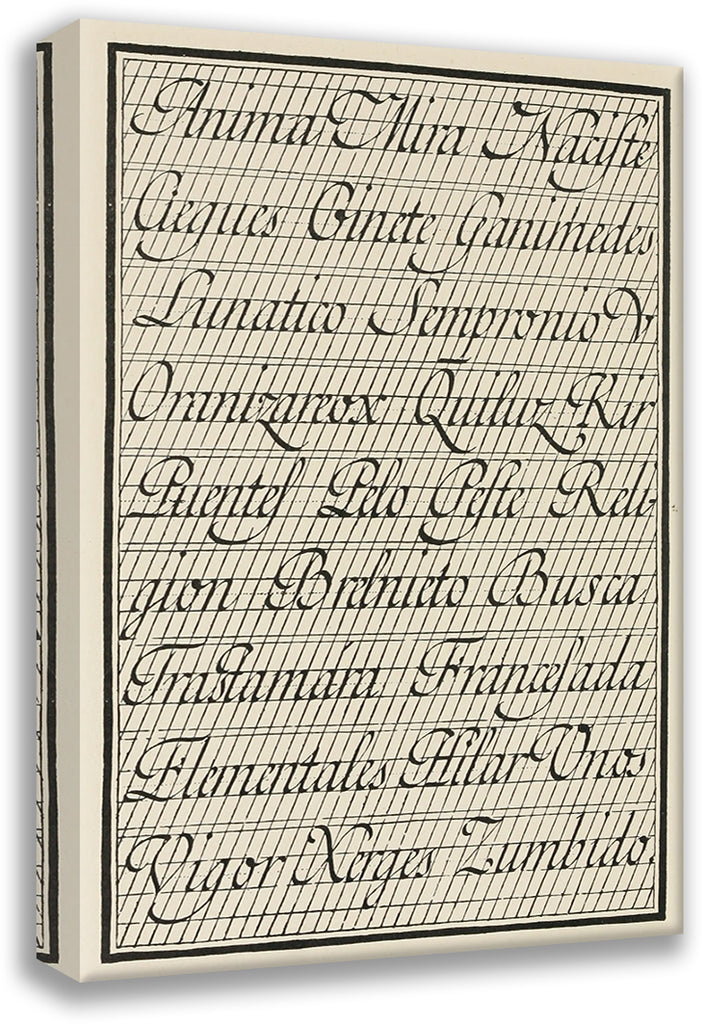 Anima Mira Naciste
Ciegues Ginete Ganimedes
Lunatico Sempronio V
Quiluz Kir
Puentes Pelo Peste Reli-
gion Brelnieto Busca
Trastamara Francesada
Elementales Hilar Vnos
Vigor Xerges Zumbido.